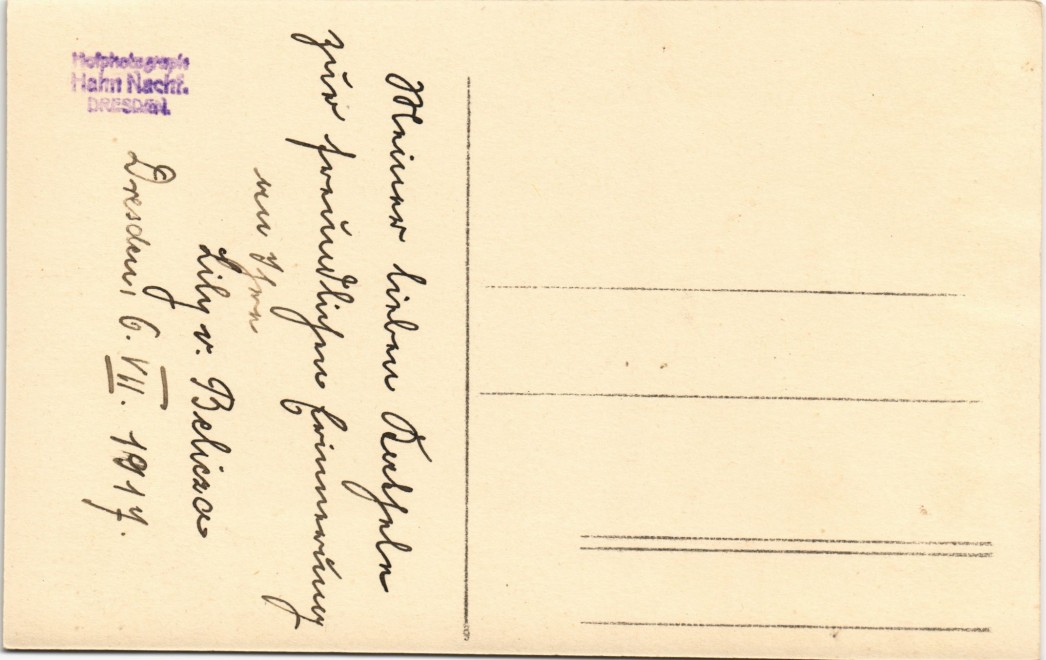 Hofphotograph
Hahn Nachf.
DRESDEN.
Meiner lieben
zur freundlichen Erinnerung
an Ihre
Lily v. Belicza
Dresden, 6. VII. 1917.